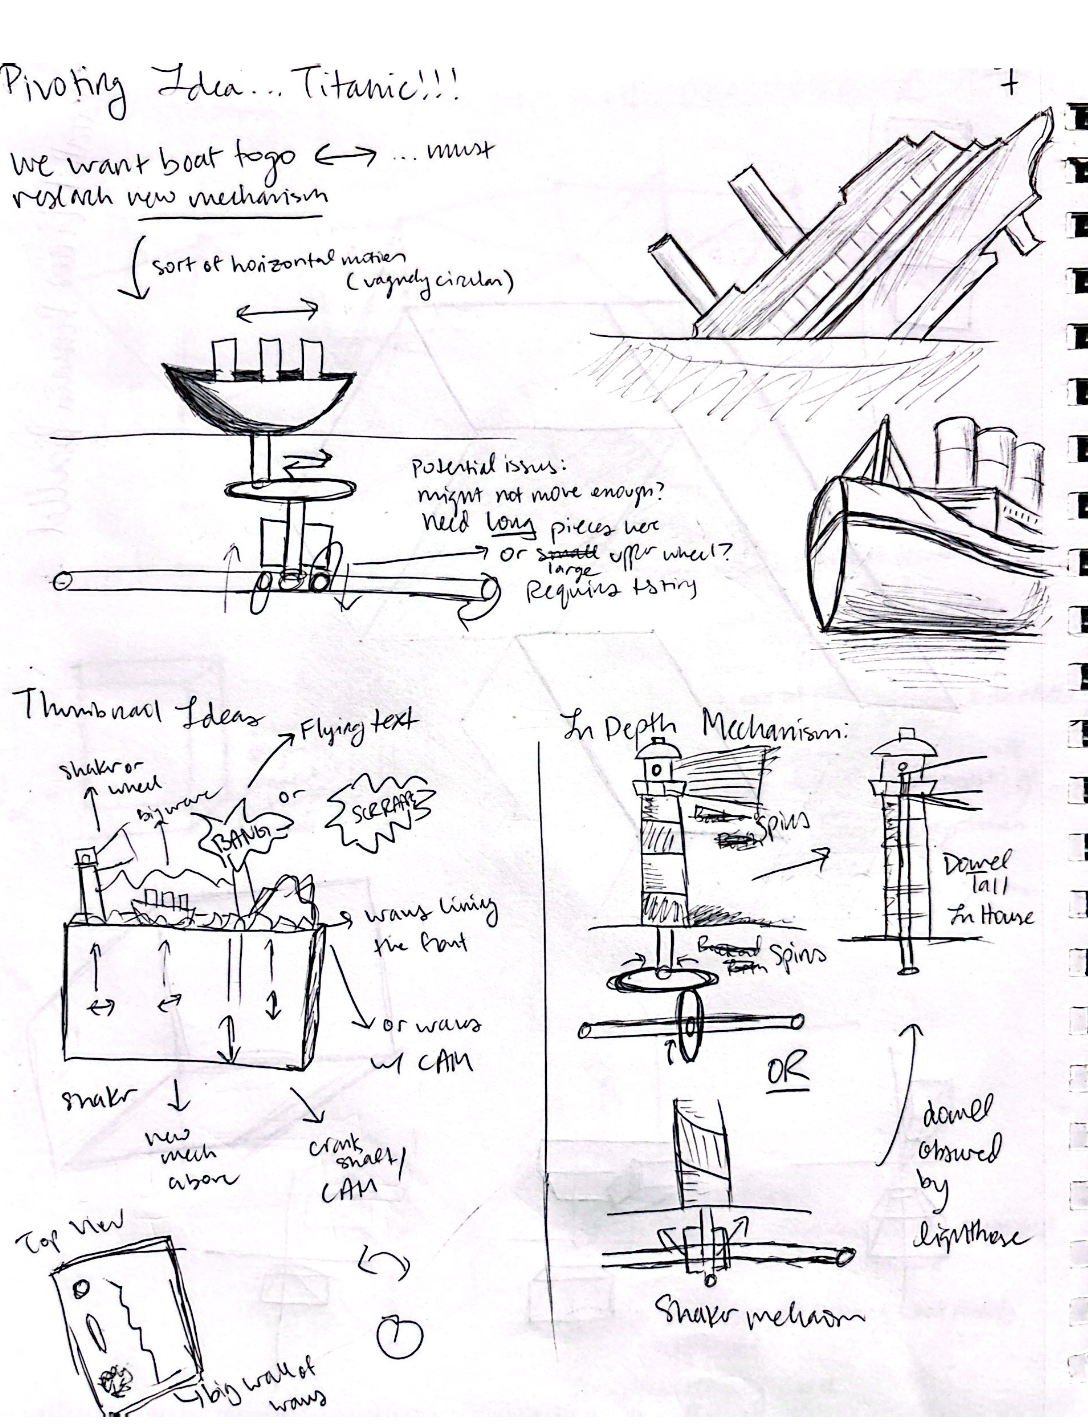 Pivoting Idea... Titanic!!!
we want boat to go ↔ ... must
research new mechanism
sort of horizontal motion
(vaguely circular)
Potential issues:
might not move enough?
need long pieces here
or small upper wheel?
large
Requires testing
Thumbnail Ideas
Flying text
shaker or
wheel
big wave
BANG!
or
SCRRAPE
waves lining
the front
or waves
w/ CAM
shaker
new
mech
above
crank
shaft/
CAM
Top View
big wall of
waves
In Depth Mechanism:
Spins
Spins
Dowel
Tall
In House
OR
dowel
obsured
by
lighthose
Shaker mechanism